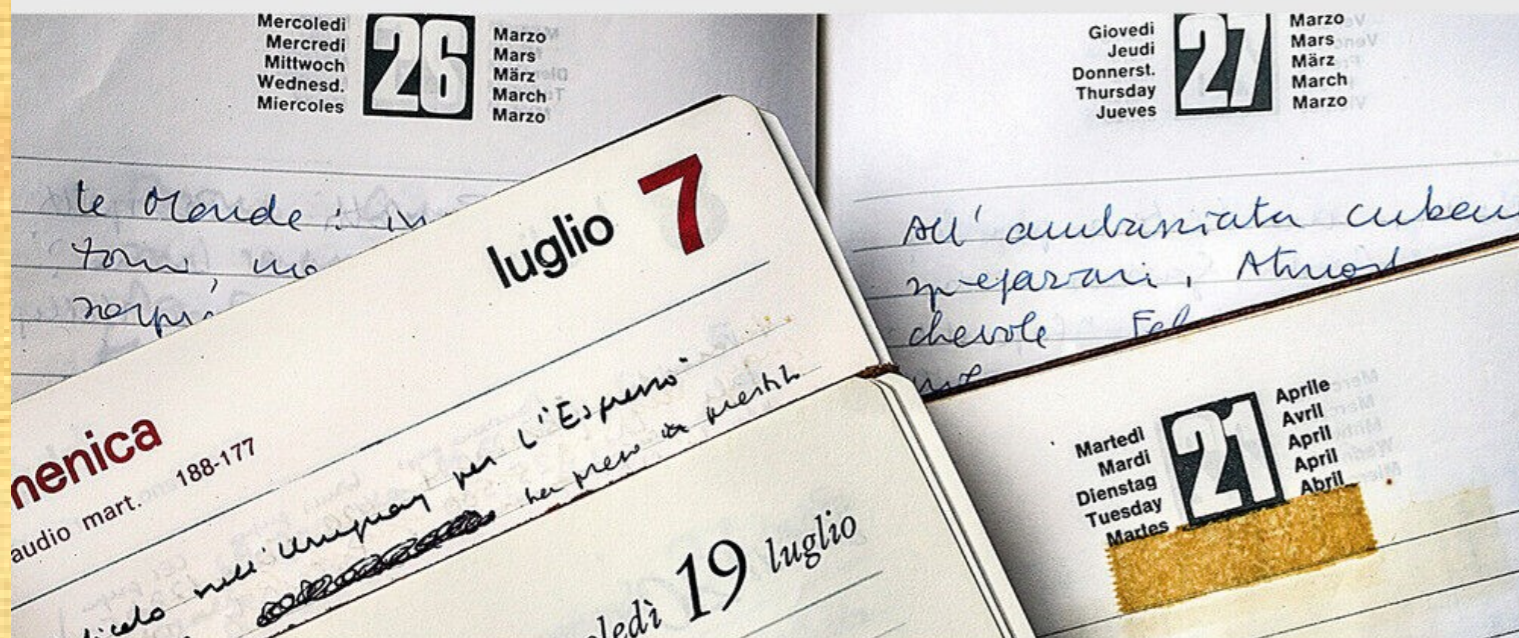 Mercoledi
Mercredi
Mittwoch
Wednesd.
Miercoles
26
Marzo
Mars
März
March
Marzo
le Monde : in
Giovedi
Jeudi
Donnerst.
Thursday
Jueves
27
Marzo
Mars
März
March
Marzo
All' ambasciata cuban
chevole Fel
luglio 7
menica
audio mart. 188-177
nell'Uruguay per l'Espresso"
ha preso in prestito
ledì 19 luglio
Martedì
Mardi
Dienstag
Tuesday
Martes
21
Aprile
Avril
April
April
Abril